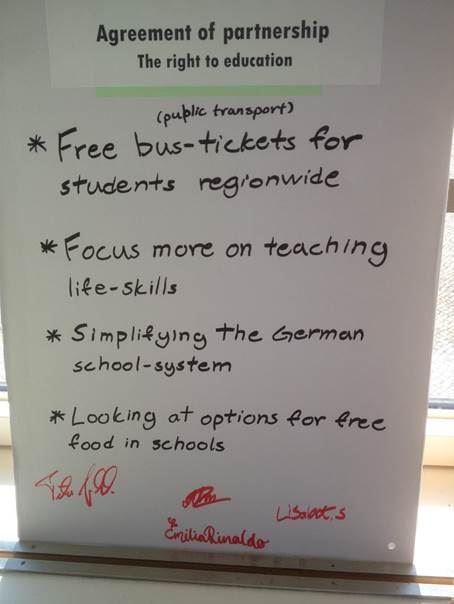 Agreement of partnership
The right to education
(public transport)
* Free bus-tickets for
students regionwide
* Focus more on teaching
life-skills
* Simplifying the German
school-system
* Looking at options for free
food in schools
Emilia Rinaldo